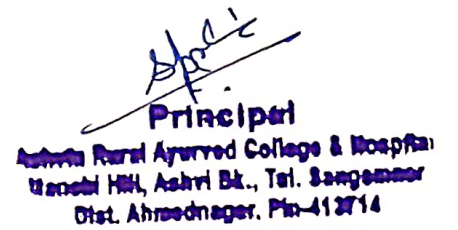 Principal
Rural Ayurved College & Hospital
Manchi Hill, Ashvi Bk., Tal. Sangamner
Dist. Ahmednagar. Pin-413714